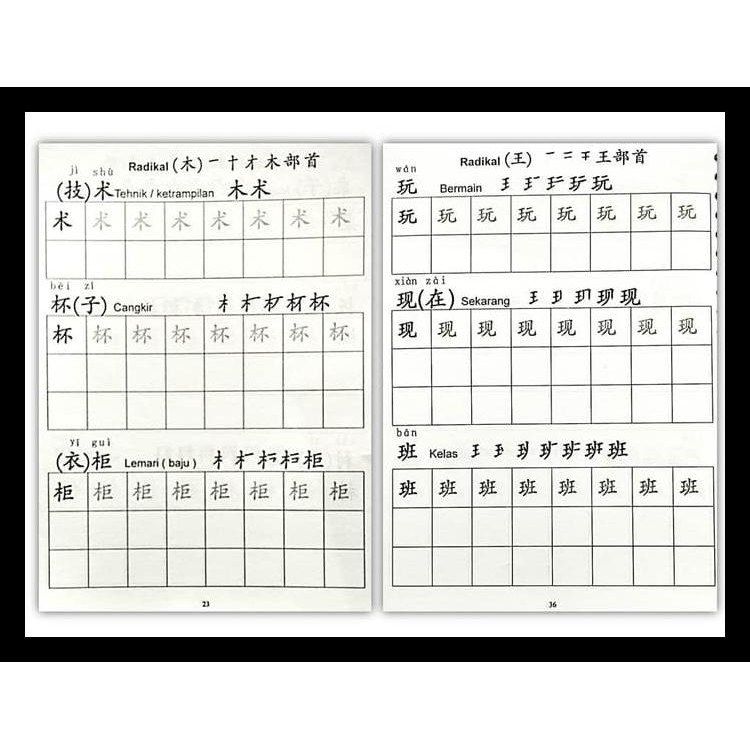 Radikal (木) 一 十 才 木 部首
jì shù
(技)术 Tehnik / ketrampilan 木术
术 术 术 术 术 术 术 术
bēi zi
杯(子) Cangkir
杯 杯 杯 杯 杯 杯 杯 杯
yī guì
(衣)柜 Lemari ( baju )
柜 柜 柜 柜 柜 柜 柜 柜
23
Radikal (王) 一 二 干 王 部首
wán
玩 Bermain
玩 玩 玩 玩 玩 玩 玩 玩
xiàn zài
现(在) Sekarang
现 现 现 现 现 现 现 现
bān
班 Kelas
班 班 班 班 班 班 班 班
36